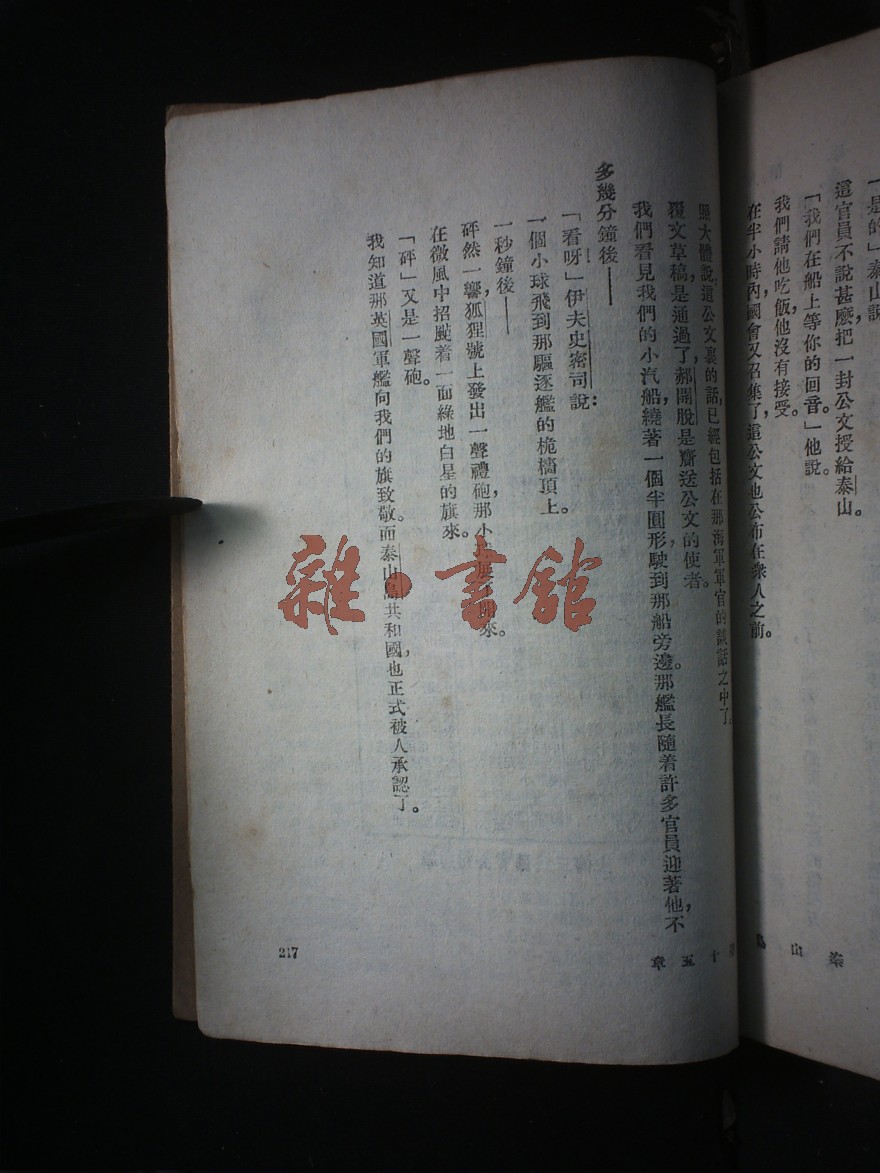 一是的」泰山說
這官員不說甚麽,把一封公文授給泰山。
「我們在船上等你的回音。」他說。
我們請他吃飯,他沒有接受。
在半小時內,國會又召集了,這公文也公布在衆人之前。
照大體說:這公文裏的話,已經包括在那海軍軍官的談話之中了。
覆文草稿,是通過了,郝開脫是齎送公文的使者。
我們看見我們的小汽船,繞著一個半圓形,駛到那船旁邊。那艦長隨着許多官員迎著他,不
多幾分鐘後——
「看呀」伊夫史密司說:
一個小球飛到那驅逐艦的桅檣頂上。
一秒鐘後——
砰然一響,狐狸號上發出一聲禮砲,那小 展 開來。
在微風中招颭着一面綠地白星的旗來。
「砰」又是一聲砲。
我知道那英國軍艦向我們的旗致敬。而泰山島共和國,也正式被人承認了。
十五章
217
雜·書館